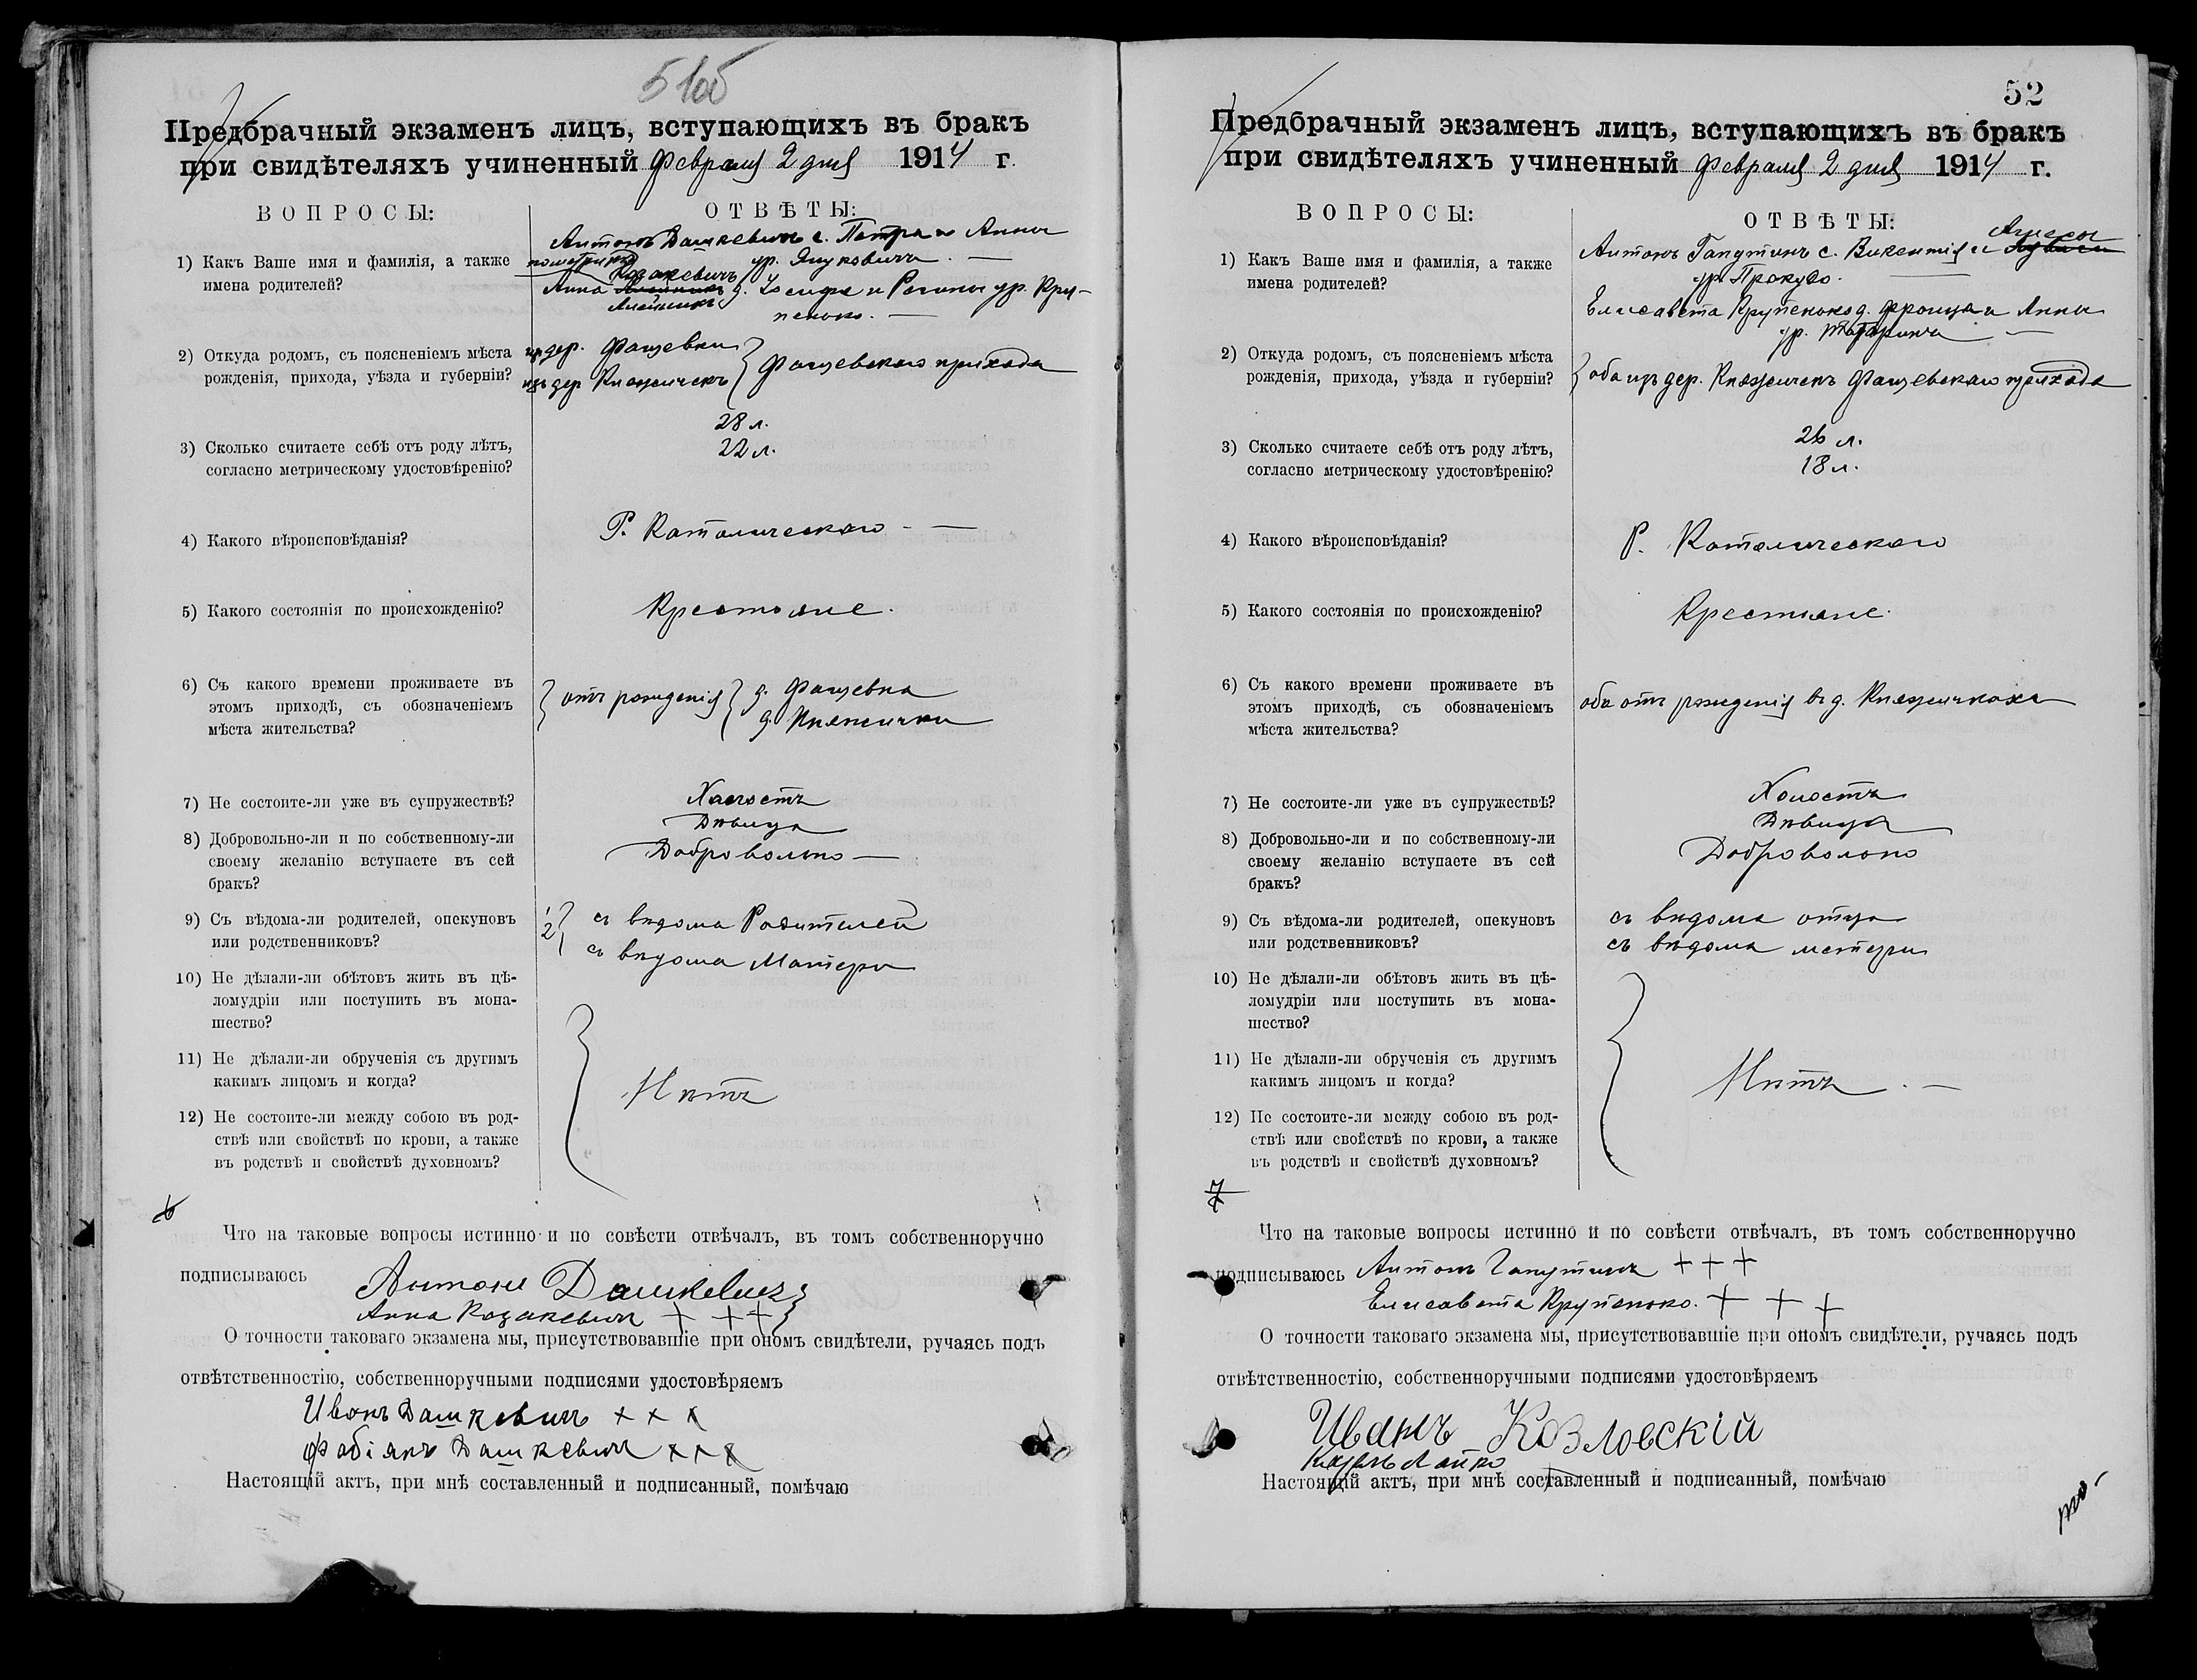 51об
Предбрачный экзаменъ лицъ, вступающихъ въ бракъ
при свидѣтеляхъ учиненный Февраля 2 дня 1914 г.
ВОПРОСЫ:
ОТВѢТЫ:
1) Какъ Ваше имя и фамилія, а также
имена родителей?
Антонъ Дашкевичъ с. Петра и Анны
ур. Януковичъ. —
Козакевичъ
Анна Алейникъ д. Іосифа и Регины ур. Кру-
Алейникъ
пенько. —
2) Откуда родомъ, съ поясненіемъ мѣста
рожденія, прихода, уѣзда и губерніи?
изъ дер. Фащевки
изъ дер. Княжичекъ } Фащевскаго прихода
3) Сколько считаете себѣ отъ роду лѣтъ,
согласно метрическому удостовѣренію?
28 л.
22 л.
4) Какого вѣроисповѣданія?
Р. Католическаго —
5) Какого состоянія по происхожденію?
Крестьяне.
6) Съ какого времени проживаете въ
этомъ приходѣ, съ обозначеніемъ
мѣста жительства?
отъ рожденія } д. Фащевка
д. Княжички
7) Не состоите-ли уже въ супружествѣ?
Холостъ
Дѣвица
8) Добровольно-ли и по собственному-ли
своему желанію вступаете въ сей
бракъ?
Добровольно —
9) Съ вѣдома-ли родителей, опекуновъ
или родственниковъ?
1 съ вѣдома Родителей
2 съ вѣдома Матери
10) Не дѣлали-ли обѣтовъ жить въ цѣ-
ломудріи или поступить въ мона-
шество?
11) Не дѣлали-ли обрученія съ другимъ
какимъ лицомъ и когда?
Нѣтъ
12) Не состоите-ли между собою въ род-
ствѣ или свойствѣ по крови, а также
въ родствѣ и свойствѣ духовномъ?
6
Что на таковые вопросы истинно и по совѣсти отвѣчалъ, въ томъ собственноручно
подписываюсь Антони Дашкевич
Анна Козакевичъ + + +
О точности таковаго экзамена мы, присутствовавшіе при ономъ свидѣтели, ручаясь подъ
отвѣтственностію, собственноручными подписями удостовѣряемъ
Иванъ Дашкевичъ × × ×
Фабіянъ Дашкевичъ × × ×
Настоящій актъ, при мнѣ составленный и подписанный, помѣчаю
52
Предбрачный экзаменъ лицъ, вступающихъ въ бракъ
при свидѣтеляхъ учиненный Февраля 2 дня 1914 г.
ВОПРОСЫ:
ОТВѢТЫ:
1) Какъ Ваше имя и фамилія, а также
имена родителей?
Агнесы
Антонъ Гапутинъ с. Викентія и
ур. Прокуво.
Елисавета Крупенько д. Франца и Анны
ур. —
2) Откуда родомъ, съ поясненіемъ мѣста
рожденія, прихода, уѣзда и губерніи?
оба изъ дер. Княжичекъ Фащевскаго прихода
3) Сколько считаете себѣ отъ роду лѣтъ,
согласно метрическому удостовѣренію?
26 л.
18 л.
4) Какого вѣроисповѣданія?
Р. Католическаго
5) Какого состоянія по происхожденію?
Крестьяне.
6) Съ какого времени проживаете въ
этомъ приходѣ, съ обозначеніемъ
мѣста жительства?
оба отъ рожденія въ д. Княжичкахъ
7) Не состоите-ли уже въ супружествѣ?
Холостъ
Дѣвица
8) Добровольно-ли и по собственному-ли
своему желанію вступаете въ сей
бракъ?
Добровольно
9) Съ вѣдома-ли родителей, опекуновъ
или родственниковъ?
съ вѣдома отца
съ вѣдома матери
10) Не дѣлали-ли обѣтовъ жить въ цѣ-
ломудріи или поступить въ мона-
шество?
11) Не дѣлали-ли обрученія съ другимъ
какимъ лицомъ и когда?
Нѣтъ. —
12) Не состоите-ли между собою въ род-
ствѣ или свойствѣ по крови, а также
въ родствѣ и свойствѣ духовномъ?
7
Что на таковые вопросы истинно и по совѣсти отвѣчалъ, въ томъ собственноручно
подписываюсь Антонъ Гапутинъ + + +
Елисавета Крупенько. + + +
О точности таковаго экзамена мы, присутствовавшіе при ономъ свидѣтели, ручаясь подъ
отвѣтственностію, собственноручными подписями удостовѣряемъ
Иванъ Козловскій
Настоящій актъ, при мнѣ составленный и подписанный, помѣчаю